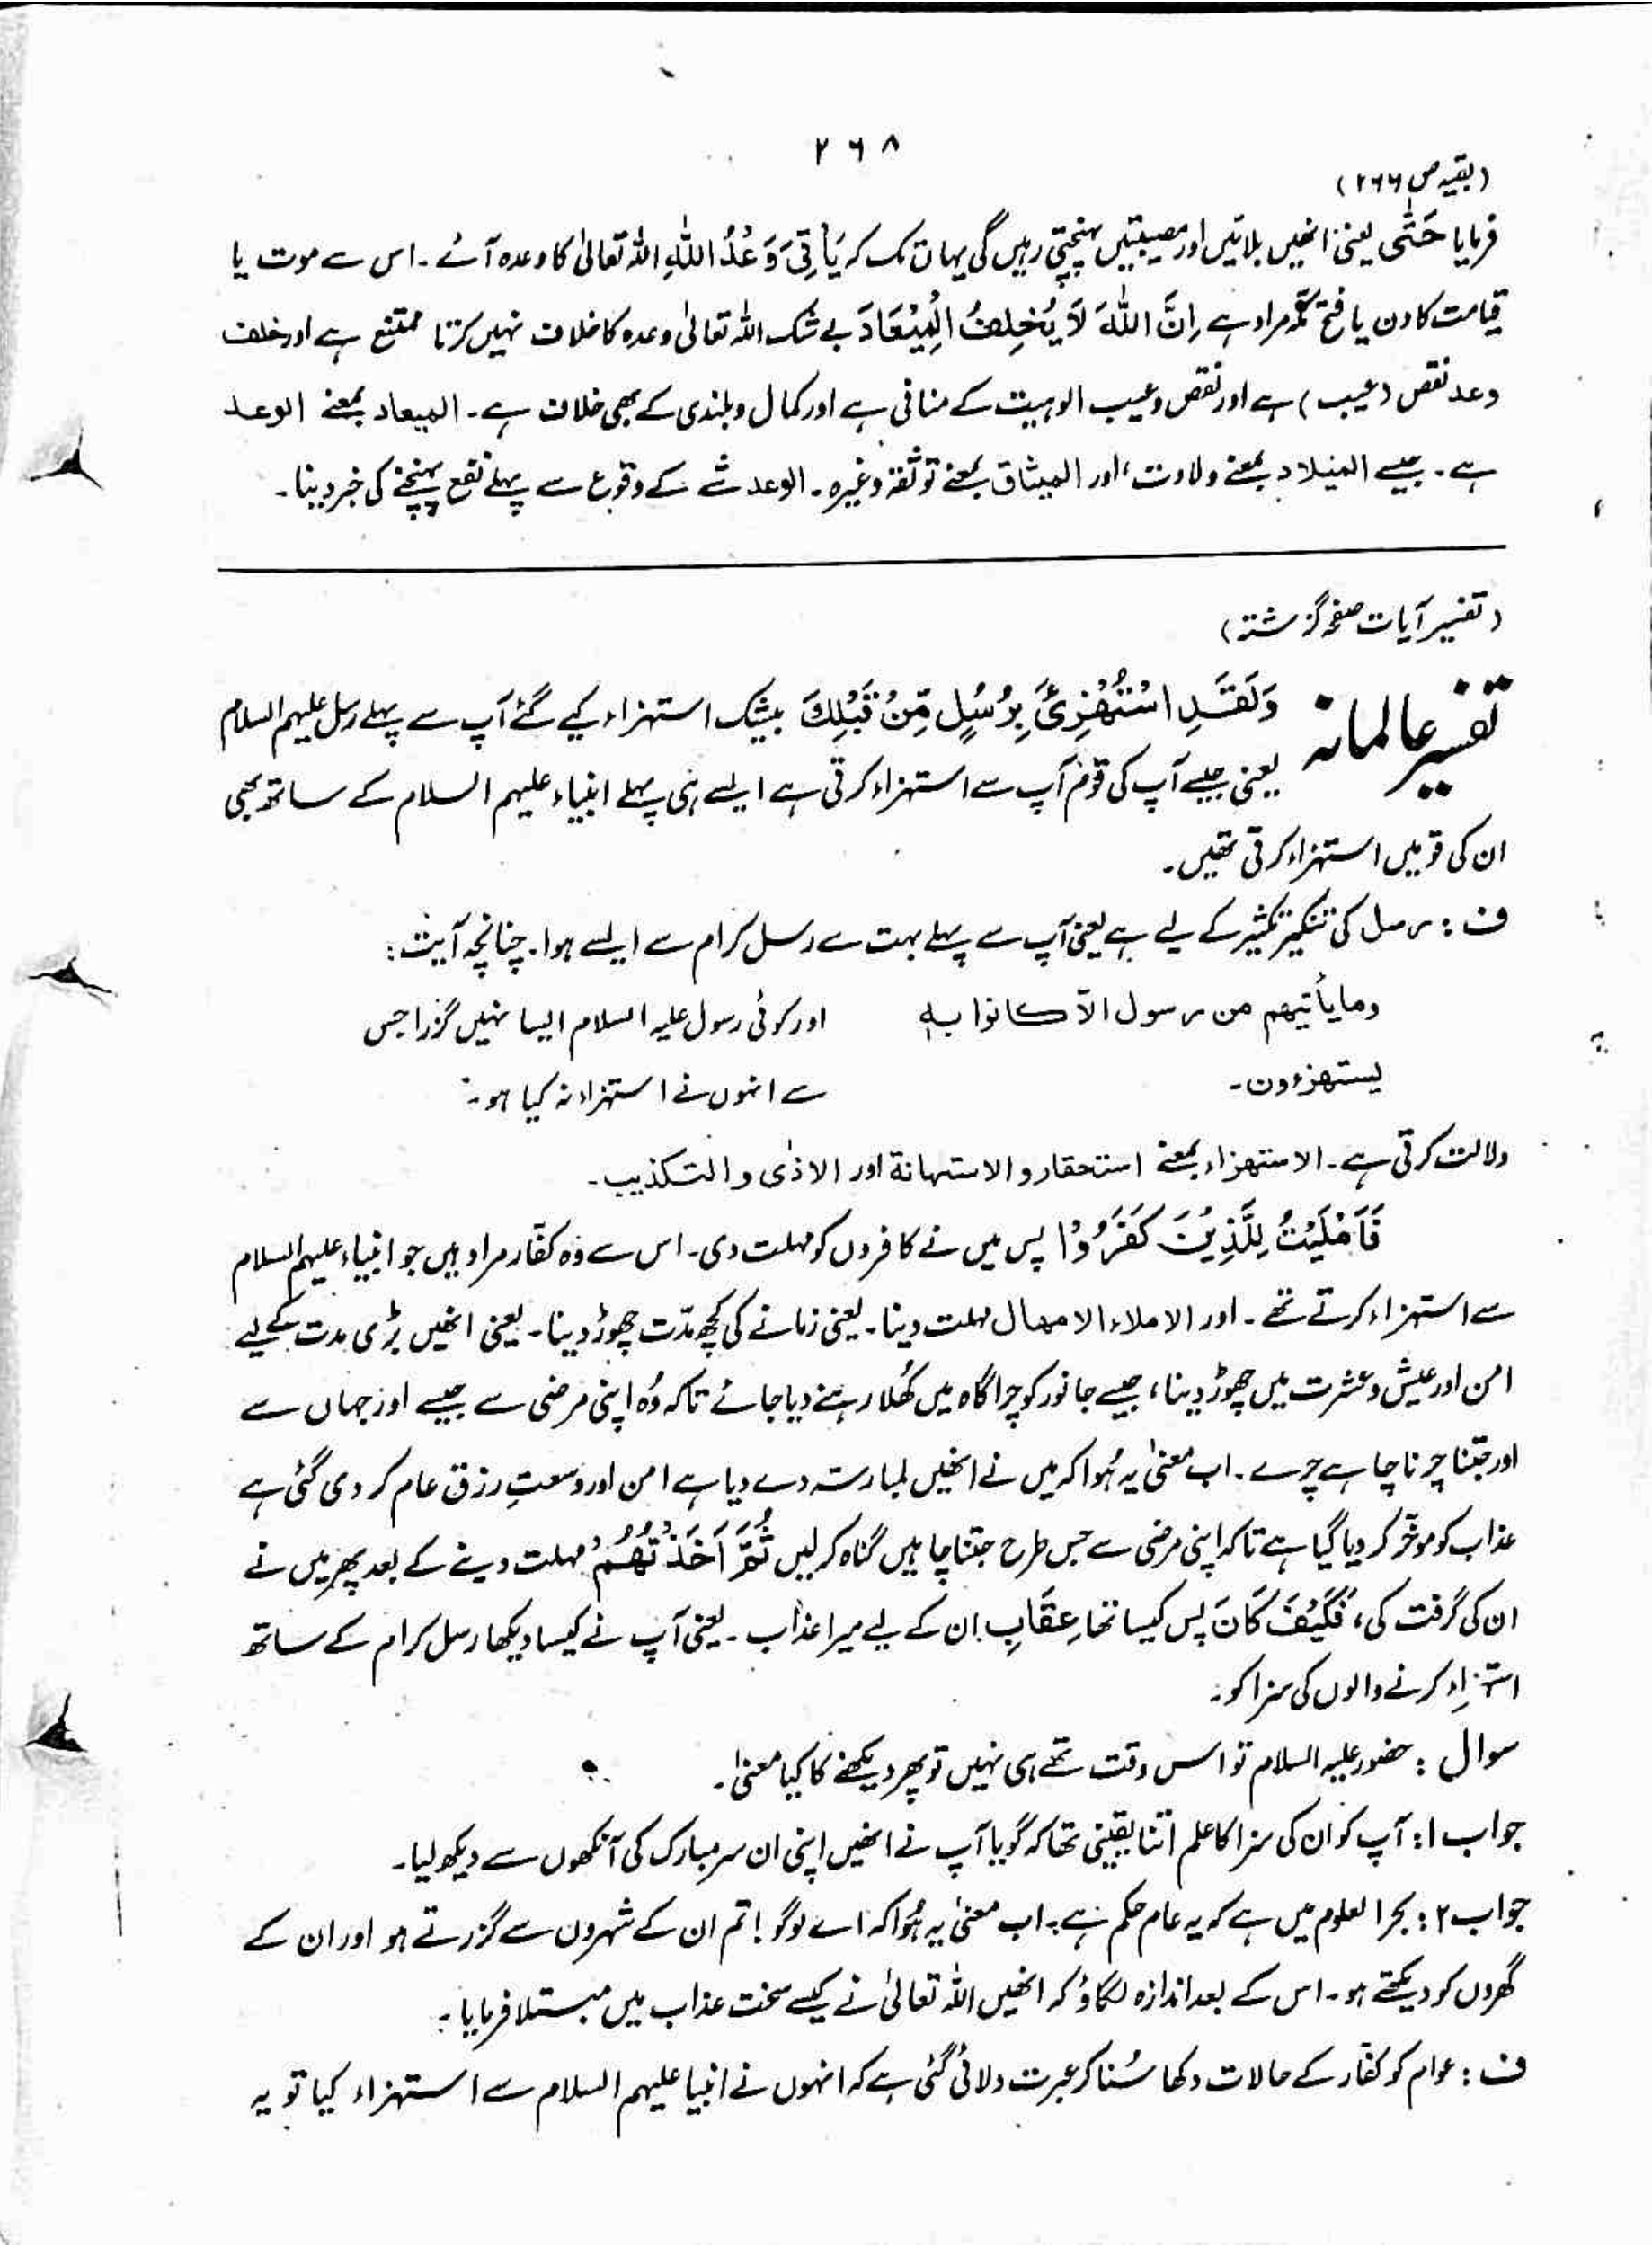 ۲۶۸
(بقیہ ص ۲۶۶)
فرمایا حَتّٰی یعنی انھیں بلائیں اور مصیبتیں پہنچتی رہیں گی یہاں تک کہ یَاْتِیَ وَعْدُ اللّٰهِ اللہ تعالیٰ کا وعدہ آئے۔ اس سے موت یا
قیامت کا دن یا فتح مکہ مراد ہے اِنَّ اللّٰهَ لَا یُخْلِفُ الْمِیْعَادَ بے شک اللہ تعالیٰ وعدہ کا خلاف نہیں کرتا ممتنع ہے اور خلف
وعد نقص (عیب) ہے اور نقص و عیب الوہیت کے منافی ہے اور کمال و بلندی کے بھی خلاف ہے۔ المیعاد بمعنے الوعد
ہے۔ جیسے المیلاد بمعنے ولادت، اور المیثاق بمعنے توثقۃ وغیرہ۔ الوعد شے کے وقوع سے پہلے نفع پہنچنے کی خبر دینا۔
(تفسیر آیات صفحہ گزشتہ)
تفسیر عالمانہ وَلَقَدِ اسْتُهْزِئَ بِرُسُلٍ مِّنْ قَبْلِكَ بیشک استہزاء کیے گئے آپ سے پہلے رسل علیہم السلام
یعنی جیسے آپ کی قوم آپ سے استہزاء کرتی ہے ایسے ہی پہلے انبیاء علیہم السلام کے ساتھ بھی
ان کی قومیں استہزاء کرتی تھیں۔
ف : رسل کی تنکیر تکثیر کے لیے ہے یعنی آپ سے پہلے بہت سے رسل کرام سے ایسے ہوا۔ چنانچہ آیت :
وما یأتیهم من رسول الّا كانوا به اور کوئی رسول علیہ السلام ایسا نہیں گزرا جس
یستهزءون۔ سے انہوں نے استہزاء نہ کیا ہو۔
دلالت کرتی ہے۔ الاستهزاء بمعنے استحقار و الاستهانة اور الاذٰی و التكذیب۔
فَاَمْلَیْتُ لِلَّذِیْنَ كَفَرُوْا پس میں نے کافروں کو مہلت دی۔ اس سے وہ کفار مراد ہیں جو انبیاء علیہم السلام
سے استہزاء کرتے تھے۔ اور الاملاء الامهال مہلت دینا۔ یعنی زمانے کی کچھ مدّت چھوڑ دینا۔ یعنی انھیں بڑی مدت کے لیے
امن اور عیش و عشرت میں چھوڑ دینا، جیسے جانور کو چراگاہ میں کُھلا رہنے دیا جائے تاکہ وُہ اپنی مرضی سے جیسے اور جہاں سے
اور جتنا چرنا چاہے چرے۔ اب معنیٰ یہ ہُوا کہ میں نے انھیں لمبا رستہ دے دیا ہے امن اور وسعتِ رزق عام کر دی گئی ہے
عذاب کو موخّر کر دیا گیا ہے تاکہ اپنی مرضی سے جس طرح جتنا چاہیں گناہ کر لیں ثُمَّ اَخَذْتُهُمْ مہلت دینے کے بعد پھر میں نے
ان کی گرفت کی، فَكَیْفَ كَانَ پس کیسا تھا عِقَابِ ان کے لیے میرا عذاب۔ یعنی آپ نے کیسا دیکھا رسل کرام کے ساتھ
استہزاء کرنے والوں کی سزا کو۔
سوال : حضور علیہ السلام تو اس وقت تھے ہی نہیں تو پھر دیکھنے کا کیا معنیٰ۔
جواب ۱ : آپ کو ان کی سزا کا علم اتنا یقینی تھا کہ گویا آپ نے انھیں اپنی ان سر مبارک کی آنکھوں سے دیکھ لیا۔
جواب ۲ : بحر العلوم میں ہے کہ یہ عام حکم ہے۔ اب معنیٰ یہ ہُوا کہ اے لوگو ! تم ان کے شہروں سے گزرتے ہو اور ان کے
گھروں کو دیکھتے ہو۔ اس کے بعد اندازہ لگاؤ کہ انھیں اللہ تعالیٰ نے کیسے سخت عذاب میں مبتلا فرمایا۔
ف : عوام کو کفّار کے حالات دکھا سُنا کر عبرت دلائی گئی ہے کہ انہوں نے انبیا علیہم السلام سے استہزاء کیا تو یہ